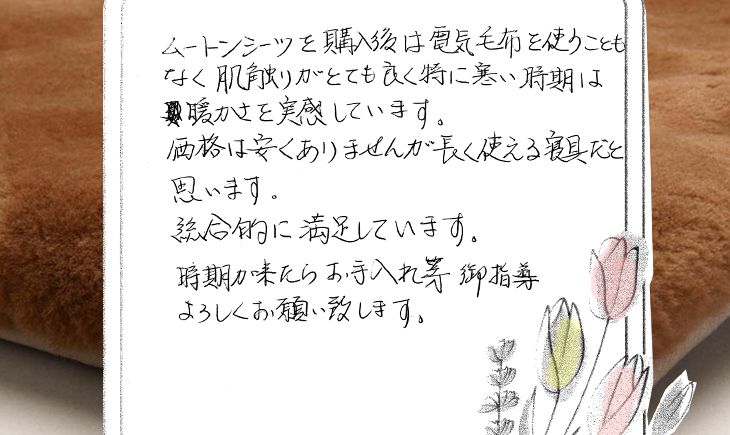 ムートンシーツを購入後は電気毛布を使うことも
なく肌触りがとても良く特に寒い時期は
暖かさを実感しています。
価格は安くありませんが長く使える寝具だと
思います。
総合的に満足しています。
時期が来たらお手入れ等御指導
よろしくお願い致します。